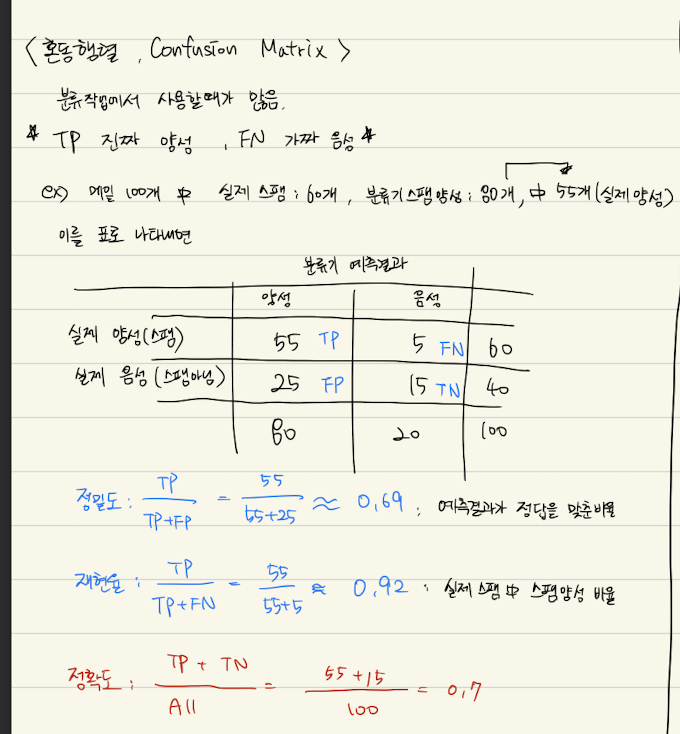 < 혼동행렬, Confusion Matrix >
분류작업에서 사용할때가 많음.
* TP 진짜 양성, FN 가짜 음성 *
ex) 메일 100개 中 실제 스팸 : 60개, 분류기 스팸양성 : 80개, 中 55개(실제 양성)
이를 표로 나타내면
분류기 예측결과
양성 음성
실제 양성(스팸) 55 TP 5 FN 60
실제 음성 (스팸아님) 25 FP 15 TN 40
80 20 100
정밀도 : TP / TP+FP = 55 / 55+25 ≈ 0.69 : 예측결과가 정답을 맞춘비율
재현율 : TP / TP+FN = 55 / 55+5 ≈ 0.92 : 실제 스팸 中 스팸양성 비율
정확도 : TP + TN / All = 55+15 / 100 = 0.7